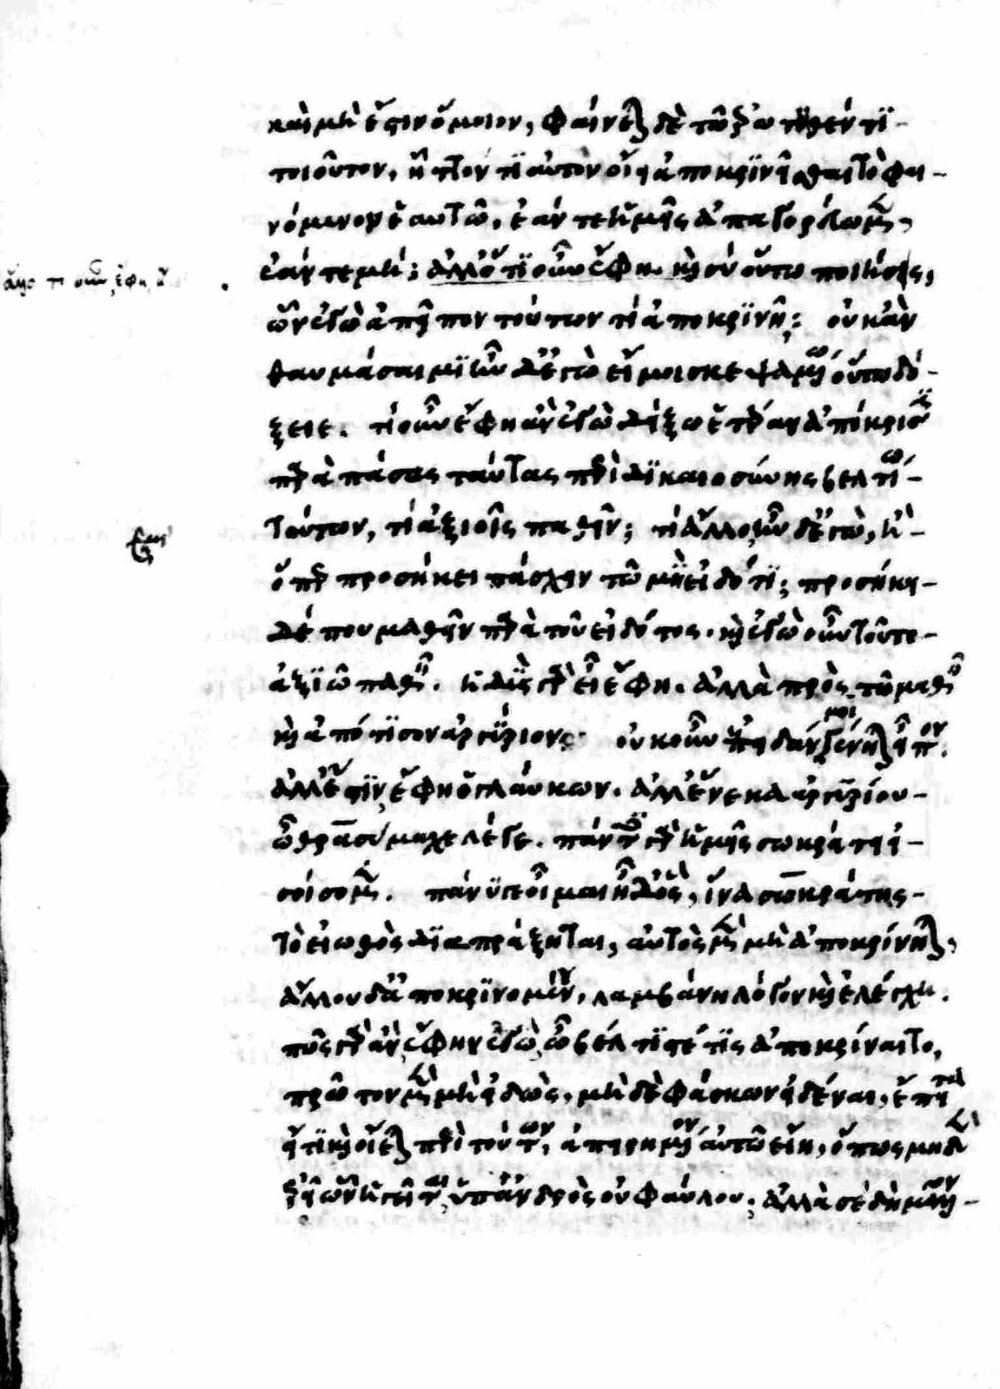 καὶ μὴ ἔστιν ὅμοιον, φαίνεται δὲ τῶ ἐρωτηθέντι
τοιοῦτον, ἧττόν τι αὐτὸν οἴει ἀποκρινεῖσθαι τὸ φαι-
νόμενον ἑαυτῶ, ἐάν τε ἡμεῖς ἀπαγορεύωμεν,
ἐάν τε μή; ἄλλό τι οὖν ἔφη. καὶ σὺ οὕτω ποιήσεις,
ἄλλο τι οὖν, ἔφη,
ὧν ἐγὼ ἀπεῖπον τούτων τι ἀποκρινῆ; οὐκ ἂν
θαυμάσαιμι ἦν δ' ἐγὼ εἴ μοι σκεψαμένω οὕτω δό-
ξειε. τί οὖν ἔφη ἂν ἐγὼ δείξω ἑτέραν ἀπόκρισιν
παρὰ πάσας ταύτας περὶ δικαιοσύνης βελτίω
τούτων, τί ἀξιοῖς παθεῖν; τί ἄλλο ἦν δ' ἐγὼ, ἢ
ὅπερ προσήκει πάσχειν τῶ μὴ εἰδότι; προσήκει
δέ που μαθεῖν παρὰ τοῦ εἰδότος. καὶ ἐγὼ οὖν τοῦτο
ἀξιῶ παθεῖν. ἡδὺς γὰρ εἶ ἔφη. ἀλλὰ πρὸς τῶ μαθεῖν
καὶ ἀπότισον ἀργύριον. οὐκοῦν ἐπειδάν μοι γένηται εἶπον.
ἀλλ' ἔστιν ἔφη ὁ γλαύκων. ἀλλ' ἕνεκα ἀργυρίου
ὦ θρασύμαχε λέγε. πάντες γὰρ ἡμεῖς σωκράτει εἰ-
σοίσομεν. πάνυ γε οἶμαι ἦ δ' ὃς, ἵνα σωκράτης
τὸ εἰωθὸς διαπράξηται, αὐτὸς μὲν μὴ ἀποκρίνηται,
ἄλλου δ' ἀποκρινομένου, λαμβάνη λόγον καὶ ἐλέγχη.
πῶς γὰρ ἂν ἔφην ἐγὼ, ὦ βέλτιστέ τις ἀποκρίναιτο,
πρῶτον μὲν μὴ εἰδὼς, μὴ δὲ φάσκων εἰδέναι, ἔπειτα
εἴ τι καὶ οἴεται περὶ τούτων, ἀπειρημένον αὐτῶ εἴη, ὅπως μηδὲν
ἐρεῖ ὧν ἡγεῖται, ὑπ' ἀνδρὸς οὐ φαύλου; ἀλλὰ σὲ δὴ μᾶλλον